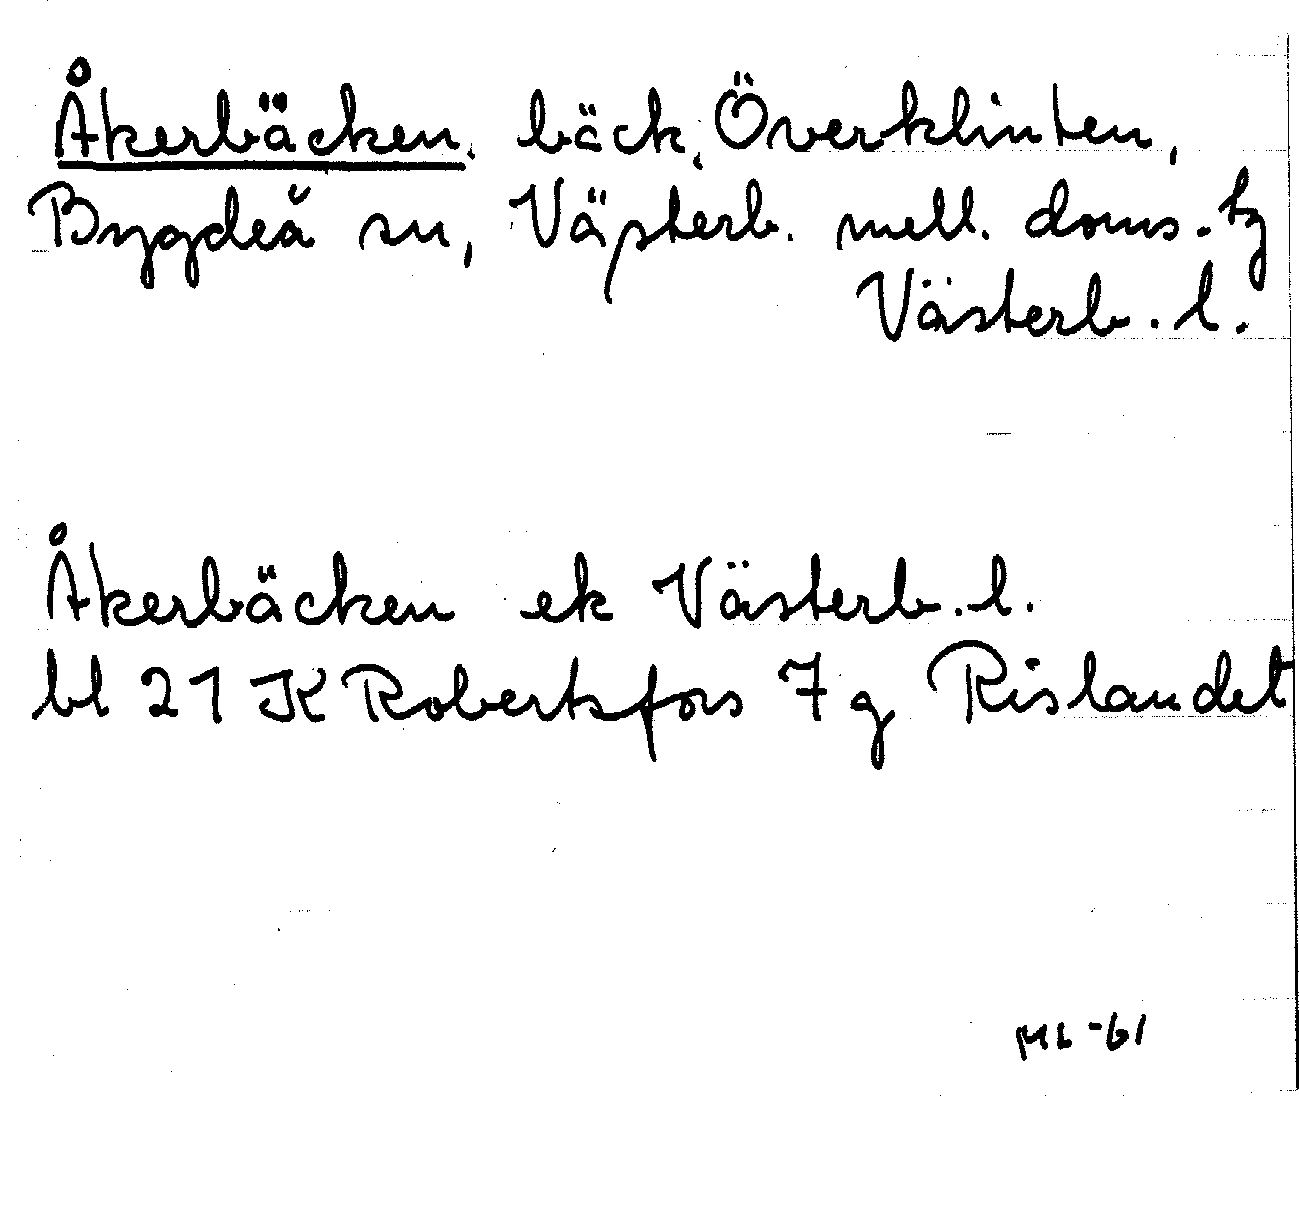 Åkerbäcken, bäck, Överklinten,
Bygdeå sn, Västerb. mell. doms. tg
Västerb. l.
Åkerbäcken ek Västerb. l.
bl 21 K Robertsfors 7 g Rislandet
ML -61